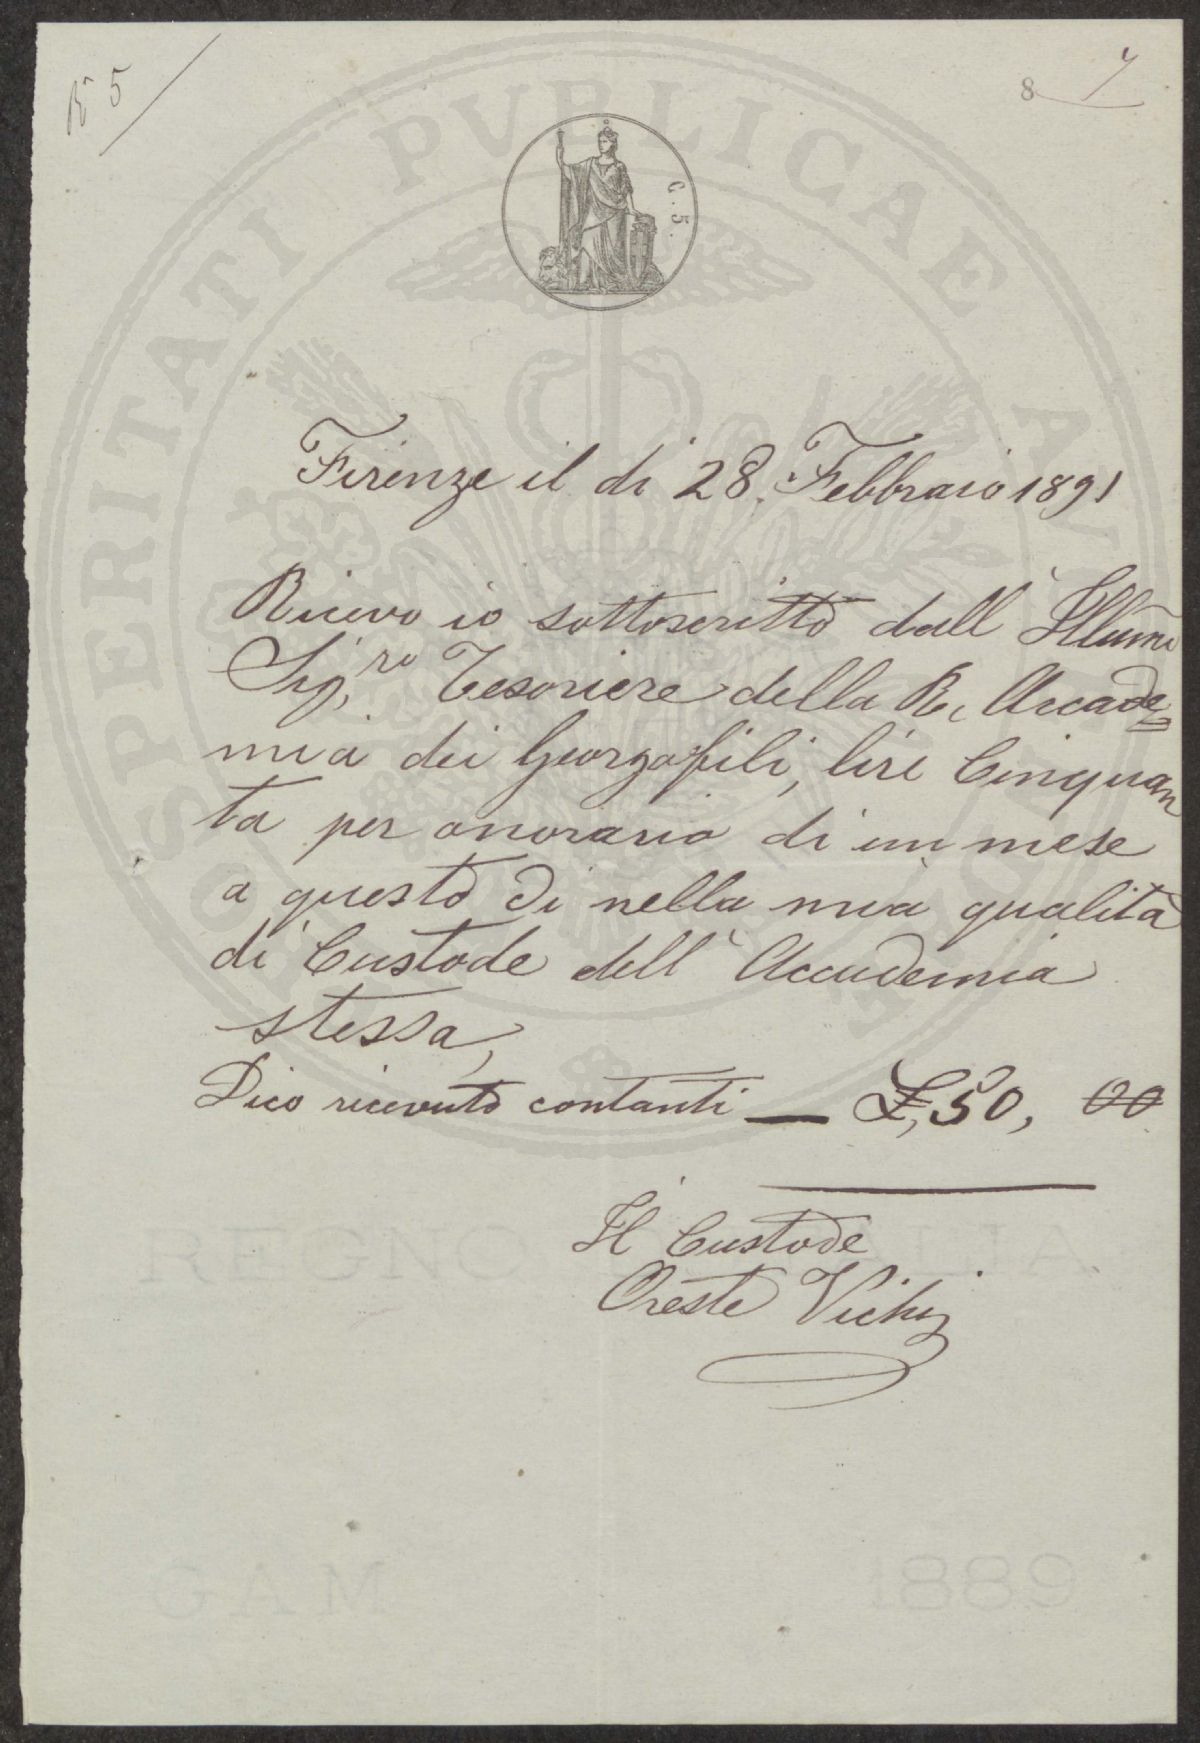 R 5
8 7
C. 5.
PROSPERITATI PVBLICAE AVGENDAE
Firenze il dì 28. Febbraio 1891
Ricevo io sottoscritto dall' Illumo
Sig.re Tesoriere della R. Accade=
mia dei Georgofili, lire Cinquan
ta per onorario di un mese
a questo dì nella mia qualità
di Custode dell' Accademia
stessa,
Dico ricevuto contanti — £, 50, 00
Il Custode
Oreste Vichi
REGNO D'ITALIA
GAM 1889